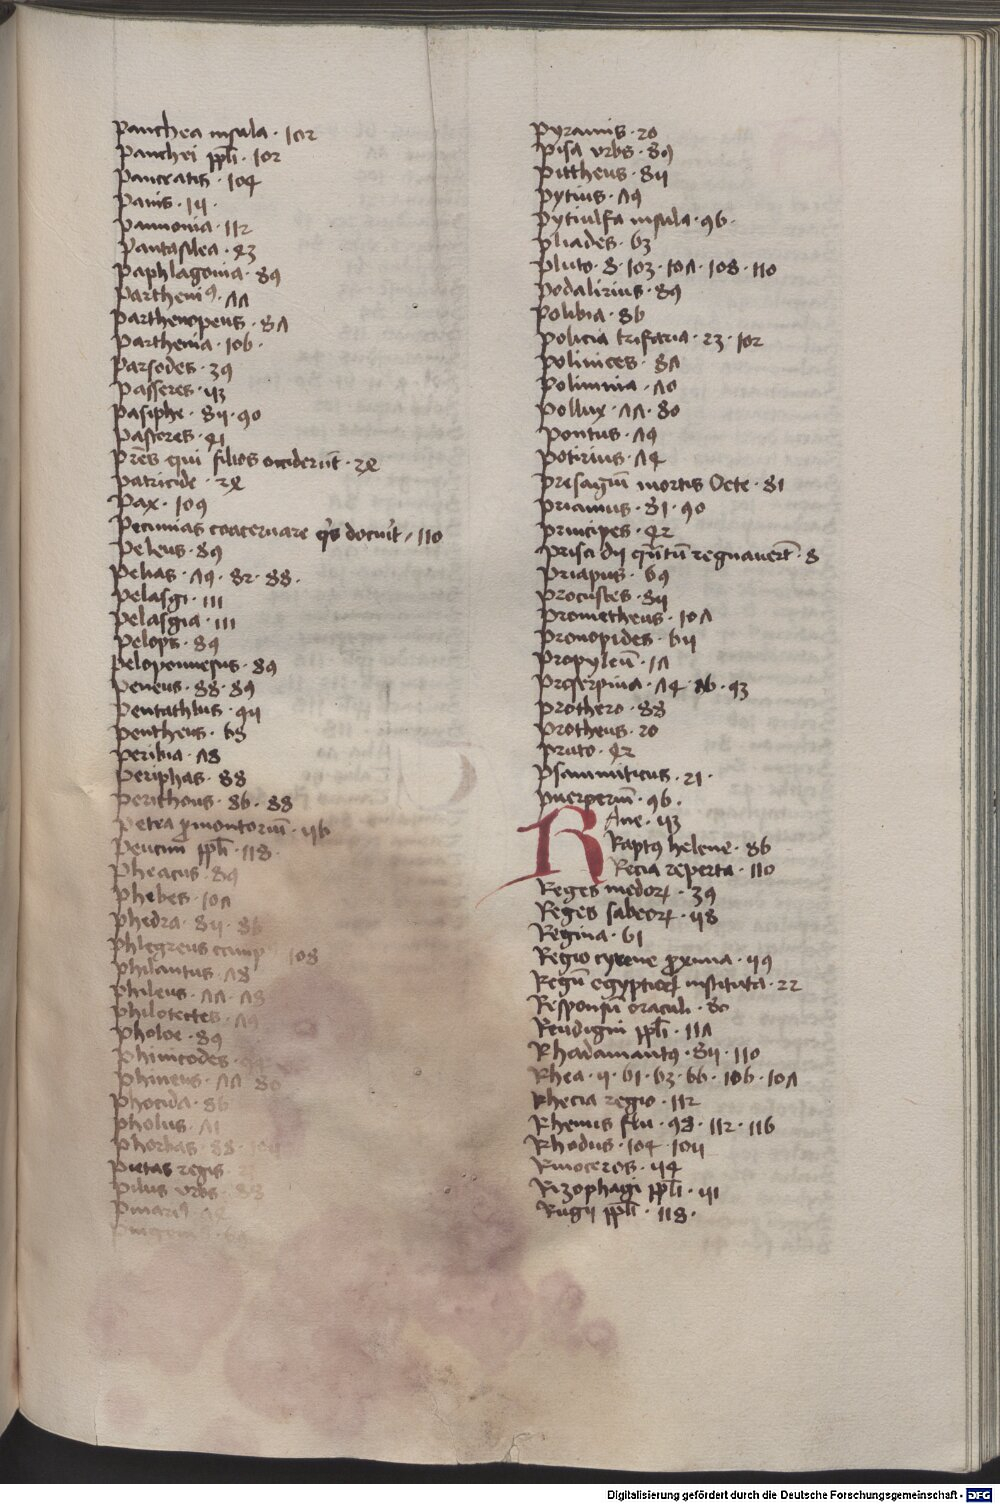 Panchea insula · 102
Panchei ppłi · 102
Pancratis · 104
Panis · 111 ·
Pannonia · 112
Pantasilea · 43
Paphlagonia · 89
Partheniꝰ · 77
Parthenopeus · 87
Parthenia · 106 ·
Parsodes · 39
Passeres · 113
Pasiphe · 85 · 90
Pastores · 41
Pr̄es qui filios occiderūt ·
Patricide ·
Pax · 109
Pecunias coaceruare q̇s docuīt · 110
Peleus · 89
Pelias · 79 · 82 · 88 ·
Pelasgi · 111
Pelasgia · 111
Pelops · 89
Peloponnesus · 89
Peneus · 88 · 89
Pentathlus · 95
Pentheus · 68
Peribia · 78
Periphas · 88
Perithous · 86 · 88
Petra ꝓmontoriū · 116
Peucini ppłi · 118 ·
Pheacus · 89
Phebes · 107
Phedra · 85 · 86
Phlegreus camp 108
Philantus · 78
Phileus · 77 · 78
Philotectes · 79
Pholoe · 89
Phinicodes
Phineus · 77 · 80
Phocida · 86
Pholus · 71
Phorbas · 88 ·
Pietas regis
Pilus vrbs · 83
Pyramis · 20
Pisa vrbs · 89
Pittheus · 85
Pytius · 79
Pytiusa insula · 96 ·
Pliades · 63
Pluto · 8 · 103 · 107 · 108 · 110
Podalirius · 89
Polibia · 86
Policia trifaria · 23 · 102
Polinices · 87
Polimnia · 70
Pollux · 77 · 80
Pontus · 79
Potirius · 74
Presagiū mortis Oete · 81
Priamus · 81 · 90
Principes · 42
Prisci dii qūtū regnauerūt · 8
Priapus · 69
Procustes · 85
Prometheus · 107
Pronopides · 65
Propyleū · 17
Proserpina · 74 · 86 · 93
Prothero · 88
Protheus · 20
Pruto · 42
Psammiticus · 21 ·
Puerperiū · 96 ·
Rane · 113
Raptꝰ helene · 86
Recia reperta · 110
Reges medoꝝ · 39
Reges sabeoꝝ · 118
Regina · 61
Regio cyrene ꝓxima · 119
Regū egyptioꝝ instituta · 22
Responsū oraculi · 80
Reudigni ppłi · 117
Rhadamantꝰ · 85 · 110
Rhea · 11 · 61 · 63 · 66 · 106 · 107
Rhecia regio · 112
Rhenus flu · 98 · 112 · 116
Rhodus · 104 · 105
Rinoceros · 114
Rizophagi ppłi · 111
Rugii ppłi · 118 ·
Digitalisierung gefördert durch die Deutsche Forschungsgemeinschaft - DFG